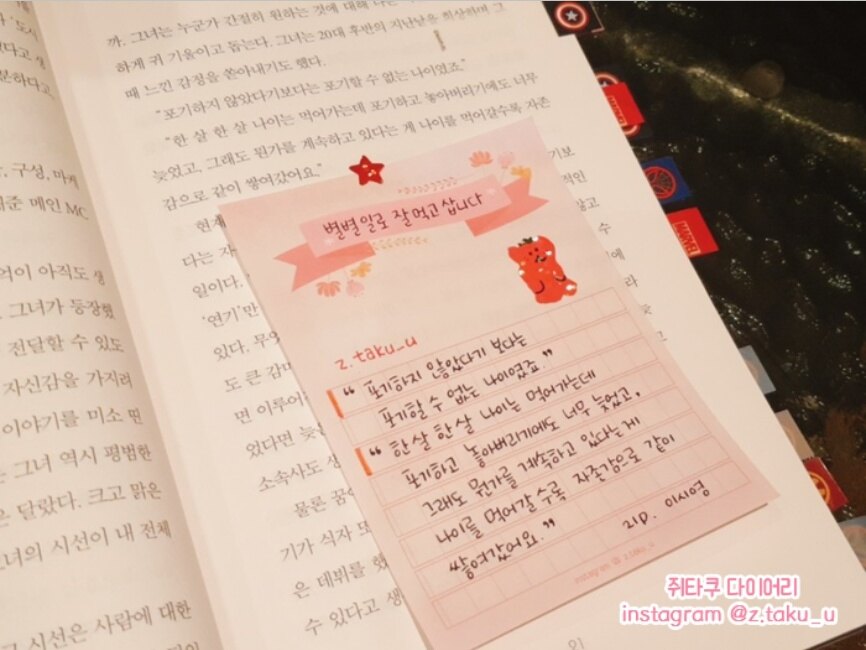 까. 그녀는 누군가 간절히 원하는 것에 대해
하게 귀 기울이고 돕는다. 그녀는 20대 후반의 지난날을 회상하며 그
때 느낀 감정을 쏟아내기도 했다.
"포기하지 않았다기보다는 포기할 수 없는 나이였죠."
"한 살 한 살 나이는 먹어가는데 포기하고 놓아버리기에도 너무
늦었고, 그래도 뭔가를 계속하고 있다는 게 나이를 먹어갈수록 자존
감으로 같이 쌓여갔어요."
기보
현재
적인
다는
일이다.
수
'연기'만
에
있다. 무
라
도 큰 감
면 이루어
었다면 늦
소속사도
물론 꿈
기가 식자
은 데뷔를 했
수 있다고 생
91
분하다고.
구성, 마케
메인 MC
억이 아직도 생
그녀가 등장했
전달할 수 있도
자신감을 가지려
이야기를 미소 띤
그녀 역시 평범한
은 달랐다. 크고 맑은
녀의 시선이 내 전체
시선은 사람에 대한
별별일로 잘 먹고 삽니다
z.taku_u
"포기하지 않았다기 보다는
포기할 수 없는 나이였죠."
"한살 한살 나이는 먹어가는데
포기하고 놓아버리기에도 너무 늦었고,
그래도 뭔가를 계속하고 있다는게
나이를 먹어갈 수록 자존감으로 같이
쌓여갔어요." 21p. 이시영
instagram @ z.taku_u
MARVEL
MARVEL
쥐타쿠 다이어리
instagram @z.taku_u